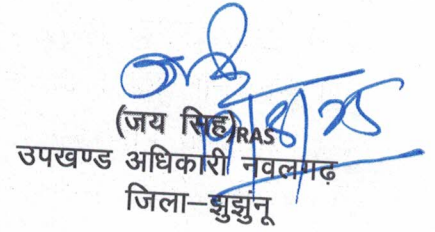 (जय सिंह)RAS
उपखण्ड अधिकारी नवलगढ़
जिला–झुझुंनू